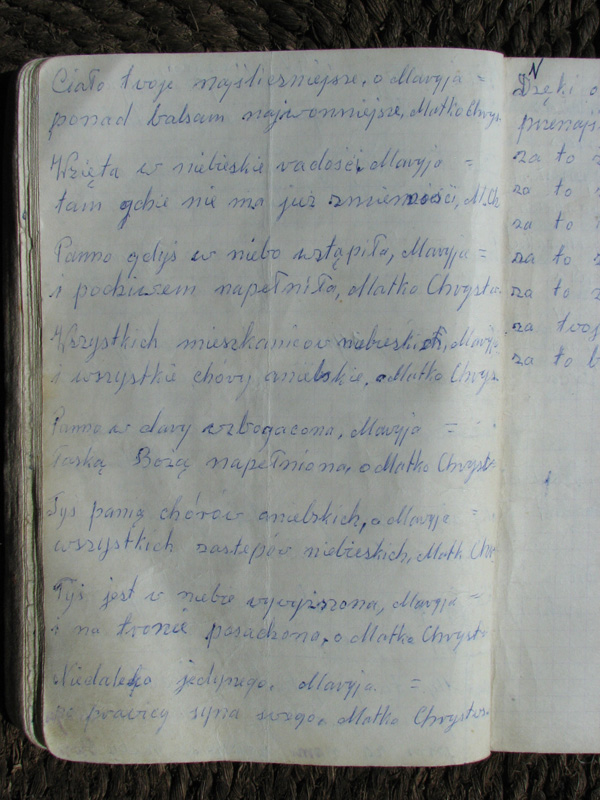 Ciało twoje najśliczniejsze, o Maryja =
ponad balsam najwonniejsze, Matko Chrys.
Wzięta w niebieskie radości, Maryjo =
tam gdzie nie ma już zmienności, M. Ch
Panno gdyś w niebo wstąpiła, Maryja =
i podziwem napełniła, Matko Chrysta.
Wszystkich mieszkańców niebieskich, Maryjo
i wszystkie chory anielskie, o Matko Chrys.
Panno w dary wzbogacona, Maryja =
łaską Bożą napełniona, o Matko Chryst.
Tyś panią chórów anielskich, o Maryja =
wszystkich zastepów niebieskich, Matk. Chr.
Tyś jest w niebie wywyższona, Maryja =
i na tronie posadzona, o Matko Chrysta
Niedaleko jedynego, Maryja. =
po prawicy syna swego, o Matko Chrystus.
Dzęki o
przenajś
za to
za to
za to
za to
za to
za twoj
za to b